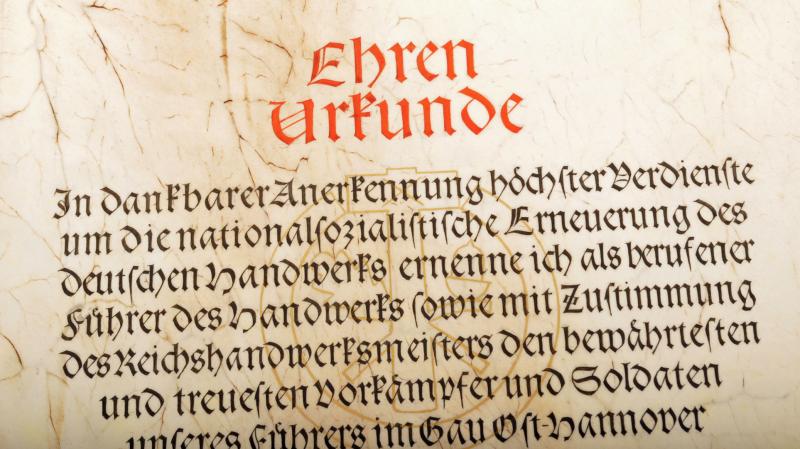 Ehren
Urkunde
In dankbarer Anerkennung höchster Verdienste
um die nationalsozialistische Erneuerung des
deutschen Handwerks ernenne ich als berufener
Führer des Handwerks sowie mit Zustimmung
des Reichshandwerksmeisters den bewährtesten
und treuesten Vorkämpfer und Soldaten
unseres Führers im Gau Ost-Hannover